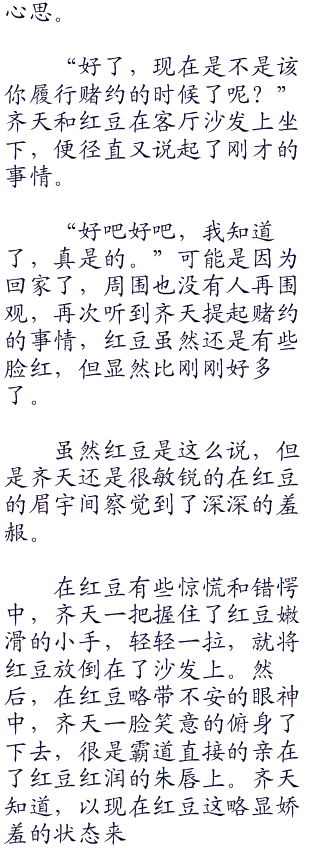 心思。
“好了，现在是不是该
你履行赌约的时候了呢？”
齐天和红豆在客厅沙发上坐
下，便径直又说起了刚才的
事情。
“好吧好吧，我知道
了，真是的。”可能是因为
回家了，周围也没有人再围
观，再次听到齐天提起赌约
的事情，红豆虽然还是有些
脸红，但显然比刚刚好多
了。
虽然红豆是这么说，但
是齐天还是很敏锐的在红豆
的眉宇间察觉到了深深的羞
赧。
在红豆有些惊慌和错愕
中，齐天一把握住了红豆嫩
滑的小手，轻轻一拉，就将
红豆放倒在了沙发上。然
后，在红豆略带不安的眼神
中，齐天一脸笑意的俯身了
下去，很是霸道直接的亲在
了红豆红润的朱唇上。齐天
知道，以现在红豆这略显娇
羞的状态来